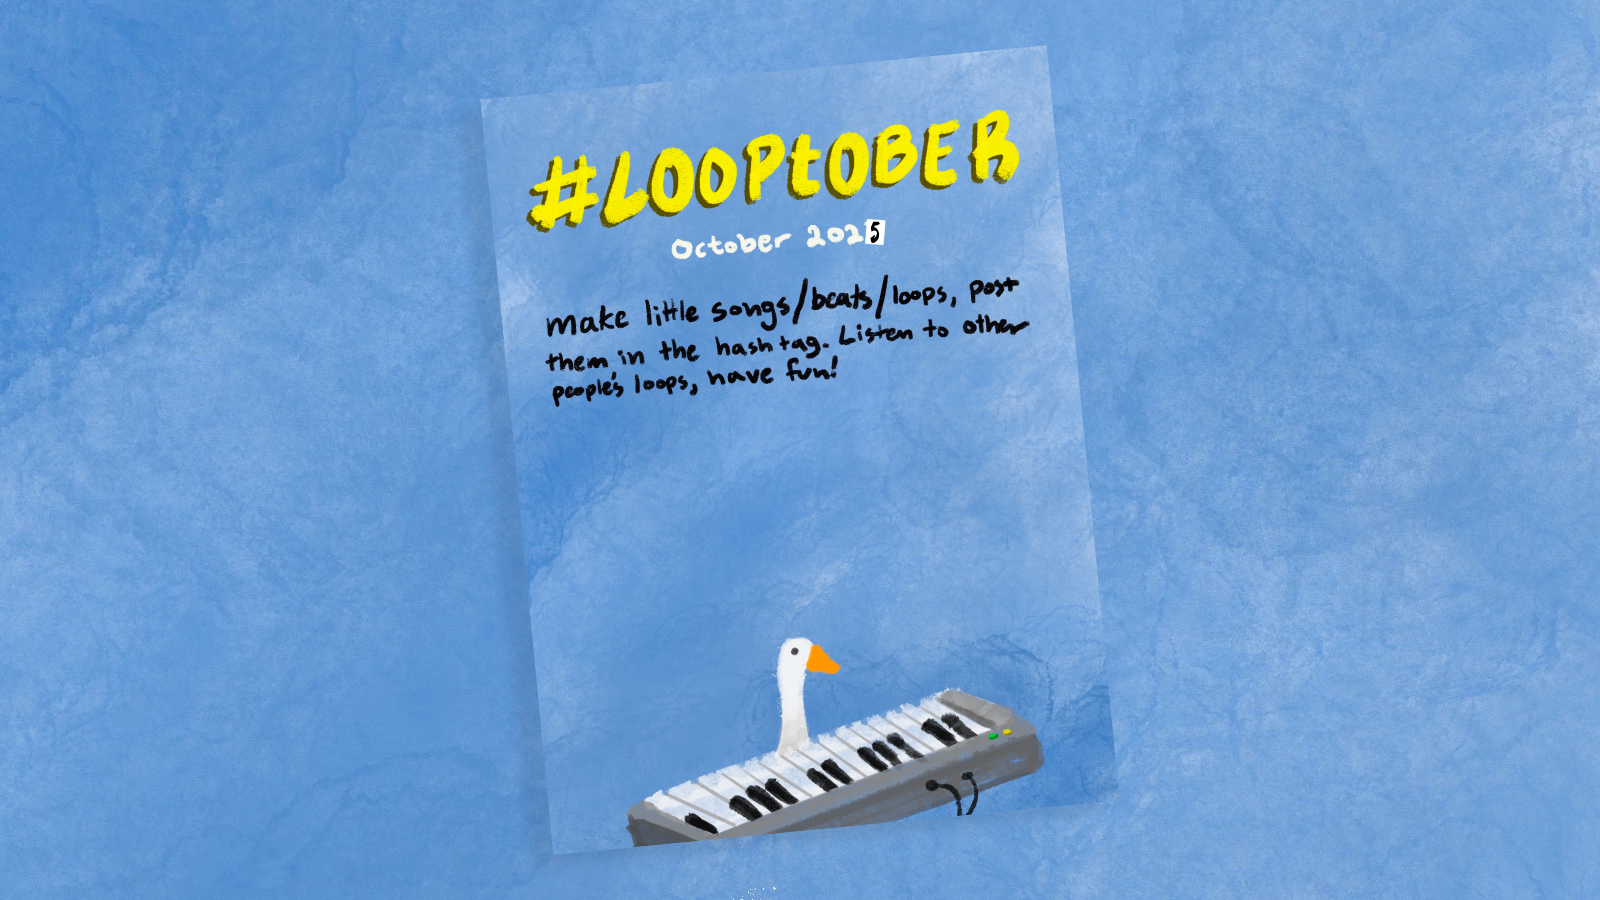 #LOOPtOBER
October 2025
make little songs/beats/loops, post
them in the hashtag. Listen to other
people's loops, have fun!